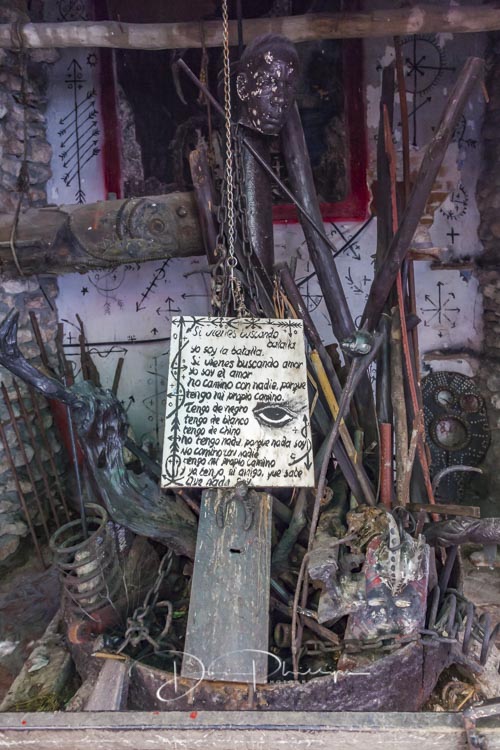 Si vienes buscando
batalla
yo soy la batalla.
Si vienes buscando amor
yo soy el amor
no camino con nadie, porque
tengo mi propio camino
Tengo de negro
tengo de blanco
tengo de chino
no tengo nada porque nada soy
No camino con nadie
tengo mi propio camino
ya tengo, si amigo,
Que nada soy